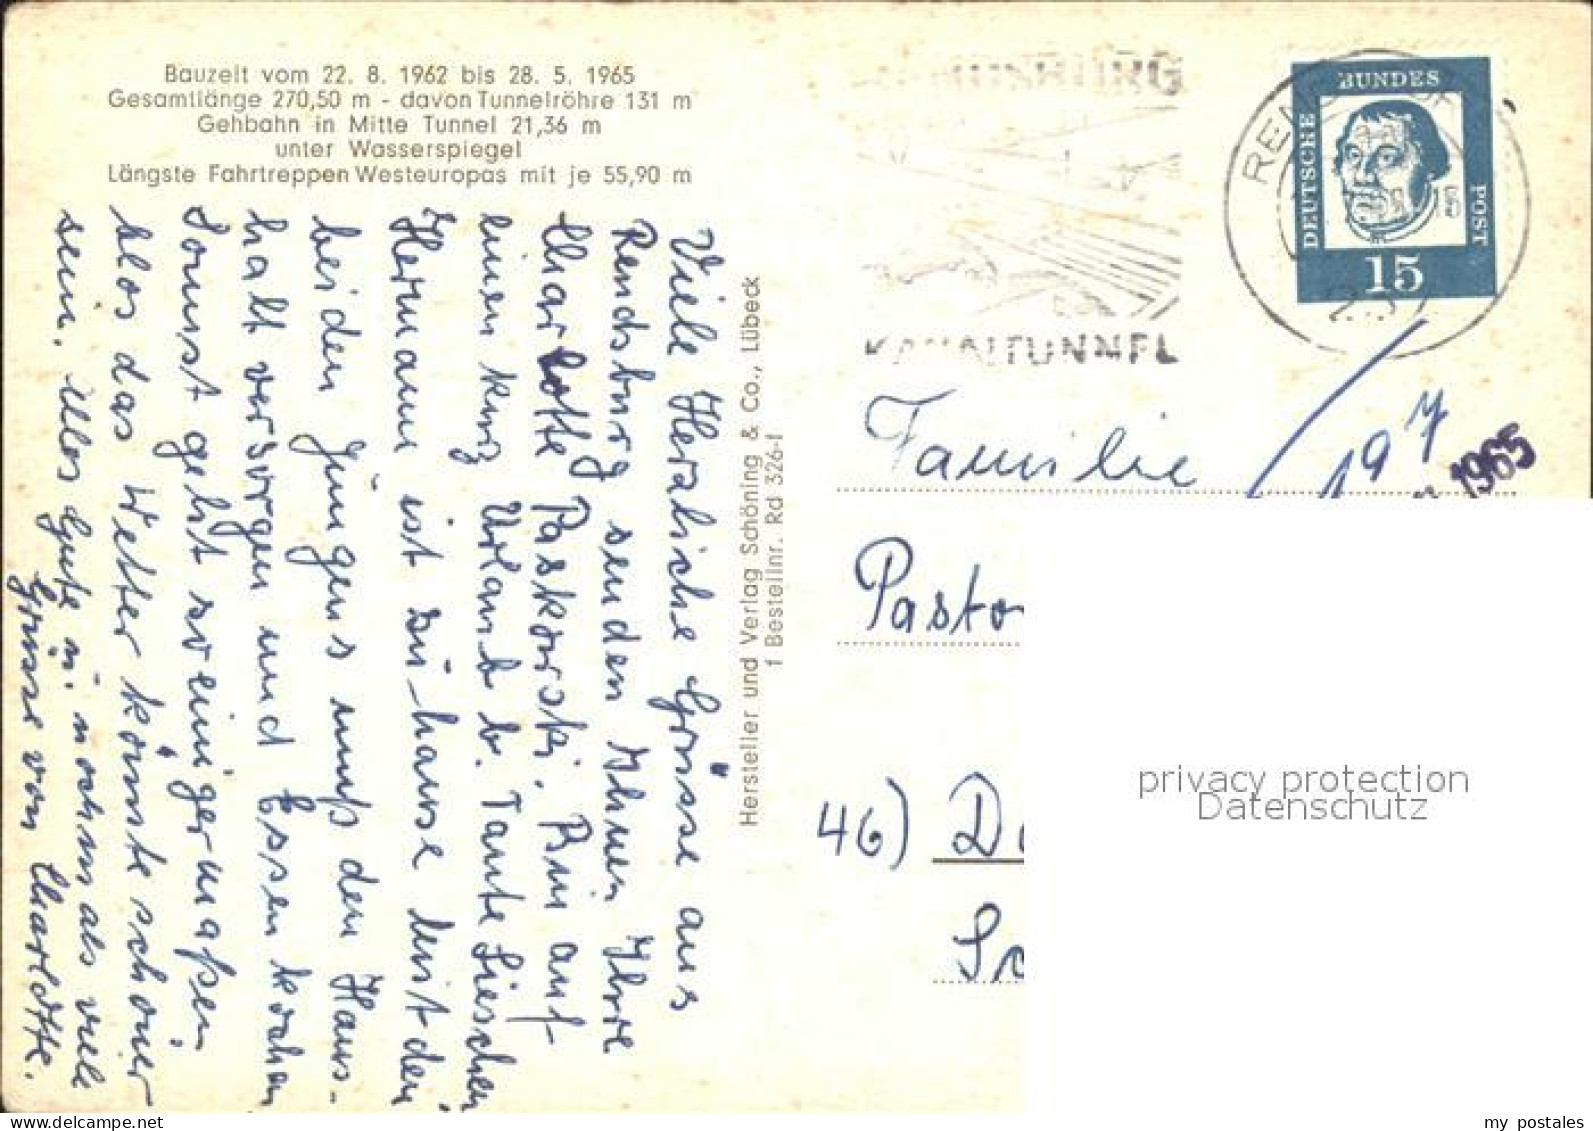 Bauzeit vom 22. 8. 1962 bis 28. 5. 1965
Gesamtlänge 270,50 m - davon Tunnelröhre 131 m
Gehbahn in Mitte Tunnel 21,36 m
unter Wasserspiegel
Längste Fahrtreppen Westeuropas mit je 55,90 m
Viele Herzliche Grüsse aus
Rendsburg senden Ihnen Ihre
Charlotte Paskowski. Bin auf
einen kurz Urlaub b. Tante Lieschen
Hermann ist zu-hause mit den
beiden Jüngens muß den Haus-
halt versorgen und Essen kochen
Sonnst geht so einigermaßen
blos das Wetter könnte schöner
sein. Alles Gute ü. nochmals viele
Grüsse von Charlotte.
Hersteller und Verlag Schöning & Co., Lübeck
1 Bestellnr. Rd 326-I
KANALTUNNEL
DEUTSCHE BUNDES POST
15
Familie
197
1965
Pasto
46) D
privacy protection
Datenschutz
www.delcampe.net
my_postales